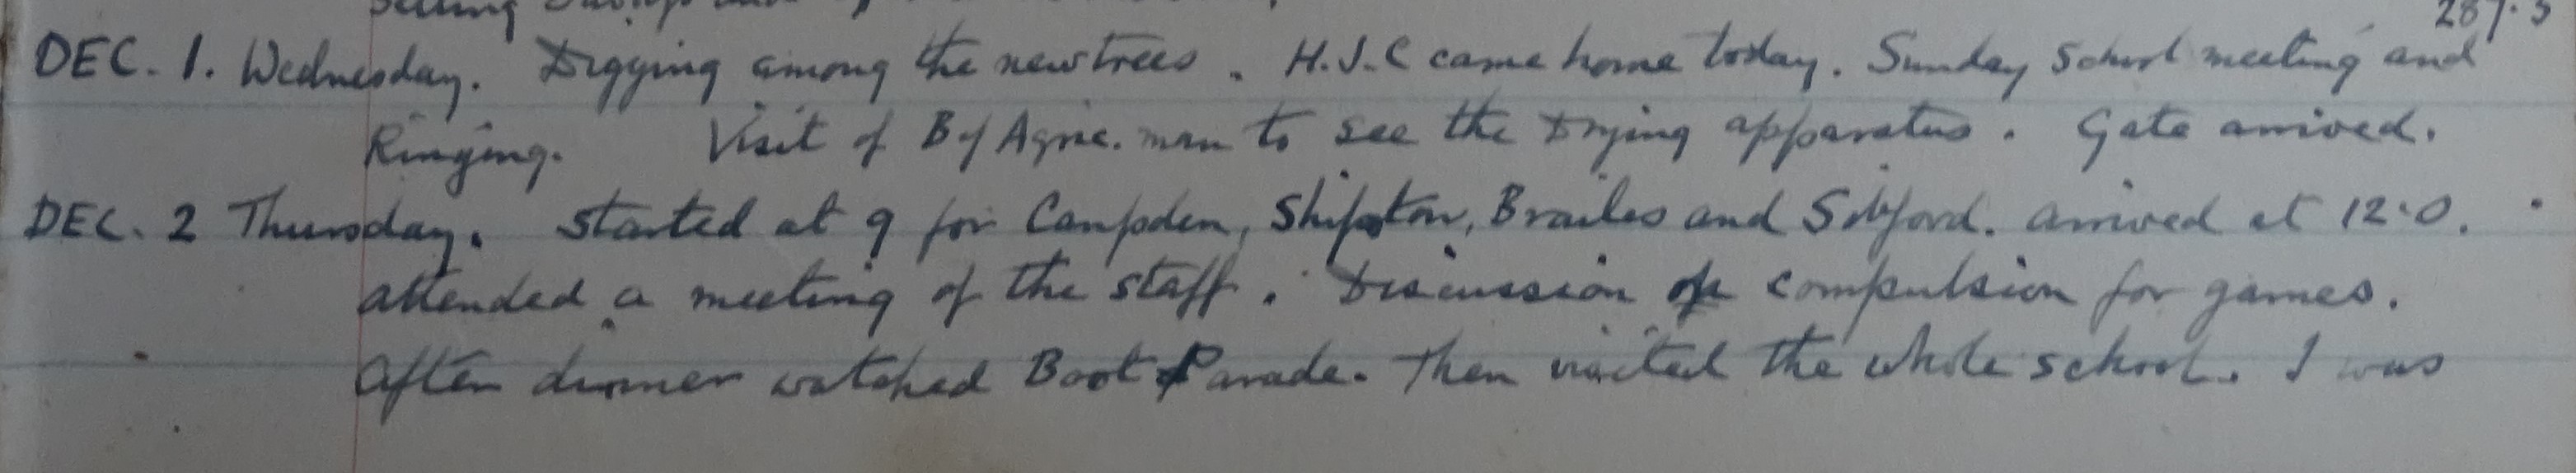 287.5
DEC. 1. Wednesday. Digging among the new trees. H.J.C came home today. Sunday School meeting and
Ringing. Visit of B of Agric. man to see the Drying apparatus. Gate arrived.
DEC. 2 Thursday. Started at 9 for Campden, Shipston, Brailes and Sibford. arrived at 12.0.
attended a meeting of the staff. Discussion of compulsion for games.
After dinner watched Boot Parade. Then visited the whole school. I was